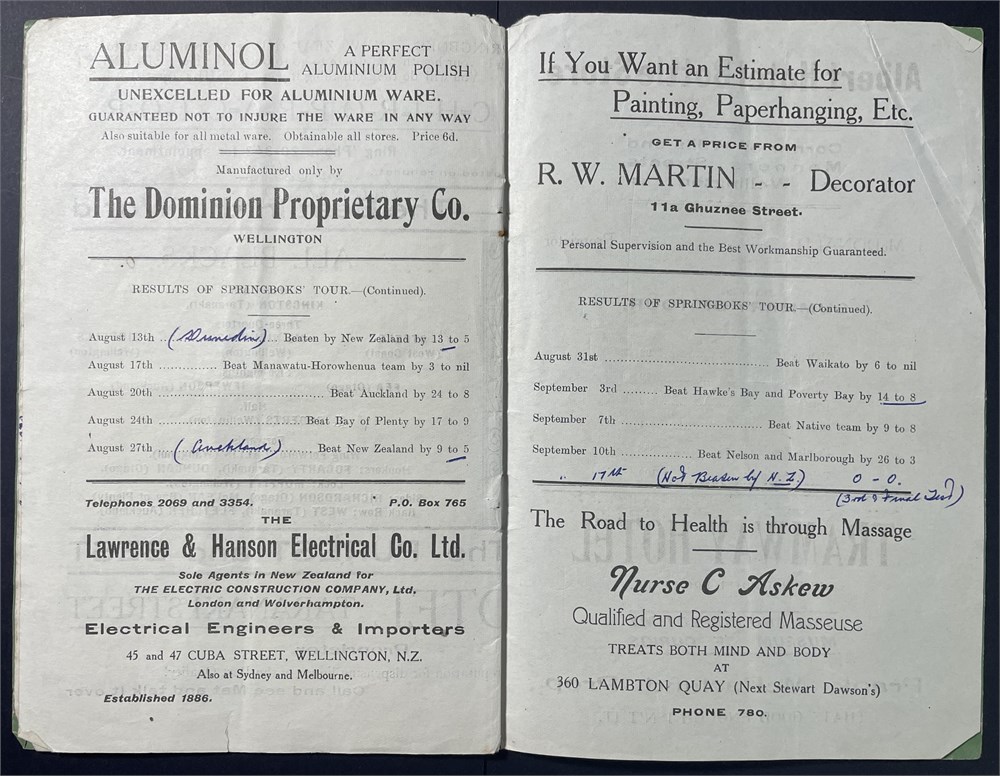 ALUMINOL A PERFECT
ALUMINIUM POLISH
UNEXCELLED FOR ALUMINIUM WARE.
GUARANTEED NOT TO INJURE THE WARE IN ANY WAY
Also suitable for all metal ware. Obtainable all stores. Price 6d.
Manufactured only by
The Dominion Proprietary Co.
WELLINGTON
RESULTS OF SPRINGBOKS' TOUR.—(Continued).
August 13th ..(Dunedin)... Beaten by New Zealand by 13 to 5
August 17th .............. Beat Manawatu-Horowhenua team by 3 to nil
August 20th .......................................... Beat Auckland by 24 to 8
August 24th .................................... Beat Bay of Plenty by 17 to 9
August 27th (Auckland)........ Beat New Zealand by 9 to 5
Telephones 2069 and 3354. P.O. Box 765
THE
Lawrence & Hanson Electrical Co. Ltd.
Sole Agents in New Zealand for
THE ELECTRIC CONSTRUCTION COMPANY, Ltd.
London and Wolverhampton.
Electrical Engineers & Importers
45 and 47 CUBA STREET, WELLINGTON, N.Z.
Also at Sydney and Melbourne.
Established 1886.
If You Want an Estimate for
Painting, Paperhanging, Etc.
GET A PRICE FROM
R. W. MARTIN - - Decorator
11a Ghuznee Street.
Personal Supervision and the Best Workmanship Guaranteed.
RESULTS OF SPRINGBOKS' TOUR.—(Continued).
August 31st ......................................... Beat Waikato by 6 to nil
September 3rd ......... Beat Hawke's Bay and Poverty Bay by 14 to 8
September 7th ..................................... Beat Native team by 9 to 8
September 10th .................... Beat Nelson and Marlborough by 26 to 3
„ 17th (Not Beaten by N.Z.) 0 - 0.
(3rd & Final Test)
The Road to Health is through Massage
Nurse C Askew
Qualified and Registered Masseuse
TREATS BOTH MIND AND BODY
AT
360 LAMBTON QUAY (Next Stewart Dawson's)
PHONE 780.